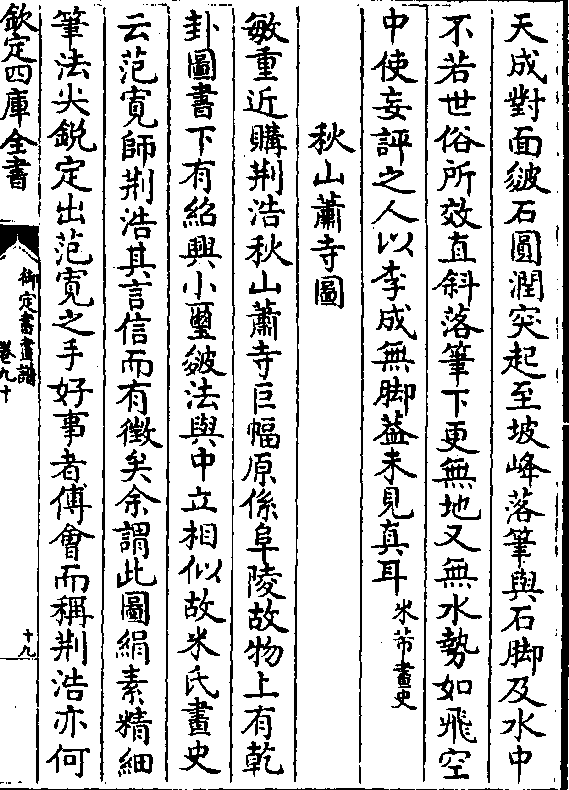 天成對面皴石圓潤突起至坡峰落筆與石脚及水中
不若世俗所效直斜落筆下更無地又無水勢如飛空
中使妄評之人以李成無脚葢未見真耳米芾畫史
秋山蕭寺圖
敏重近購荆浩秋山蕭寺巨幅原係阜陵故物上有乾
卦圖書下有紹興小璽皴法與中立相似故米氏畫史
云范寛師荆浩其言信而有徴矣余謂此圖絹素精細
筆法尖銳定出范寛之手好事者傅會而稱荆浩亦何
欽定四庫全書
御定書畫譜
卷九十
十九